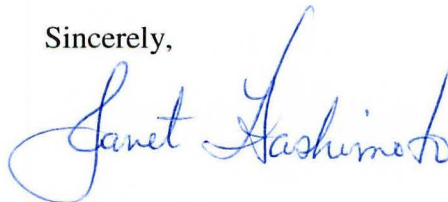 Sincerely,
Janet Hashimoto